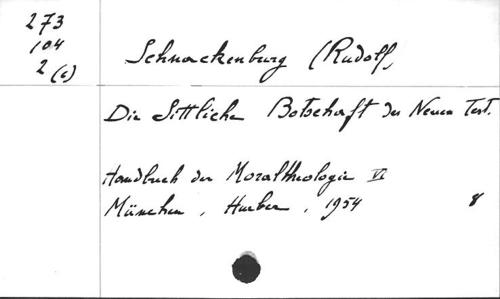 273
104
2 (c)
Schnackenburg (Rudolf,
Die Sittliche Botschaft des Neuen Test.
Handbuch der Moraltheologie VI
München, Hueber, 1954 8